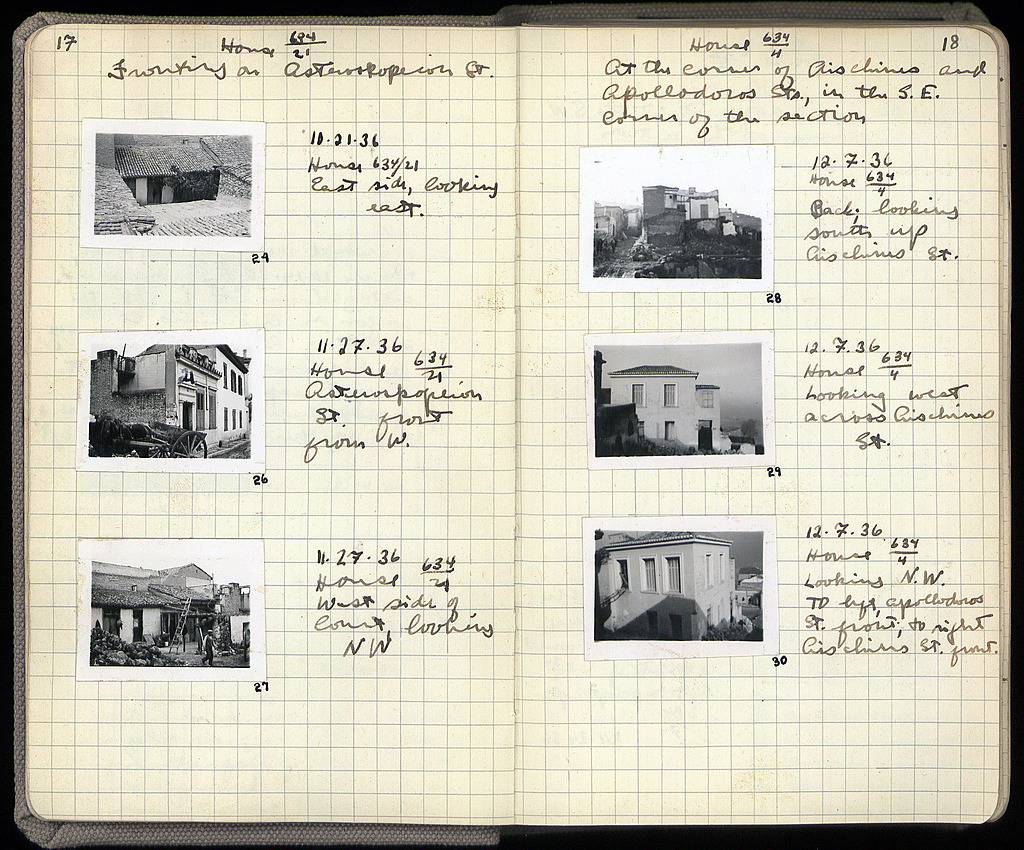 17
House 634/21
Fronting on Asteroskopeion St.
10.21.36
House 634/21
East side, looking
east.
24
11.27.36
House 634/21
Asteroskopeion
St. front
from W.
26
11.27.36
House 634/21
West side of
Court, looking
NW
27
18
House 634/4
At the corner of Aischines and
Apollodoros Sts., in the S.E.
corner of the section
12.7.36
House 634/4
Back, looking
south up
Aischines St.
28
12.7.36
House 634/4
Looking west
across Aischines
St.
29
12.7.36
House 634/4
Looking N.W.
To left, Apollodoros
St. front, to right
Aischines St. front.
30